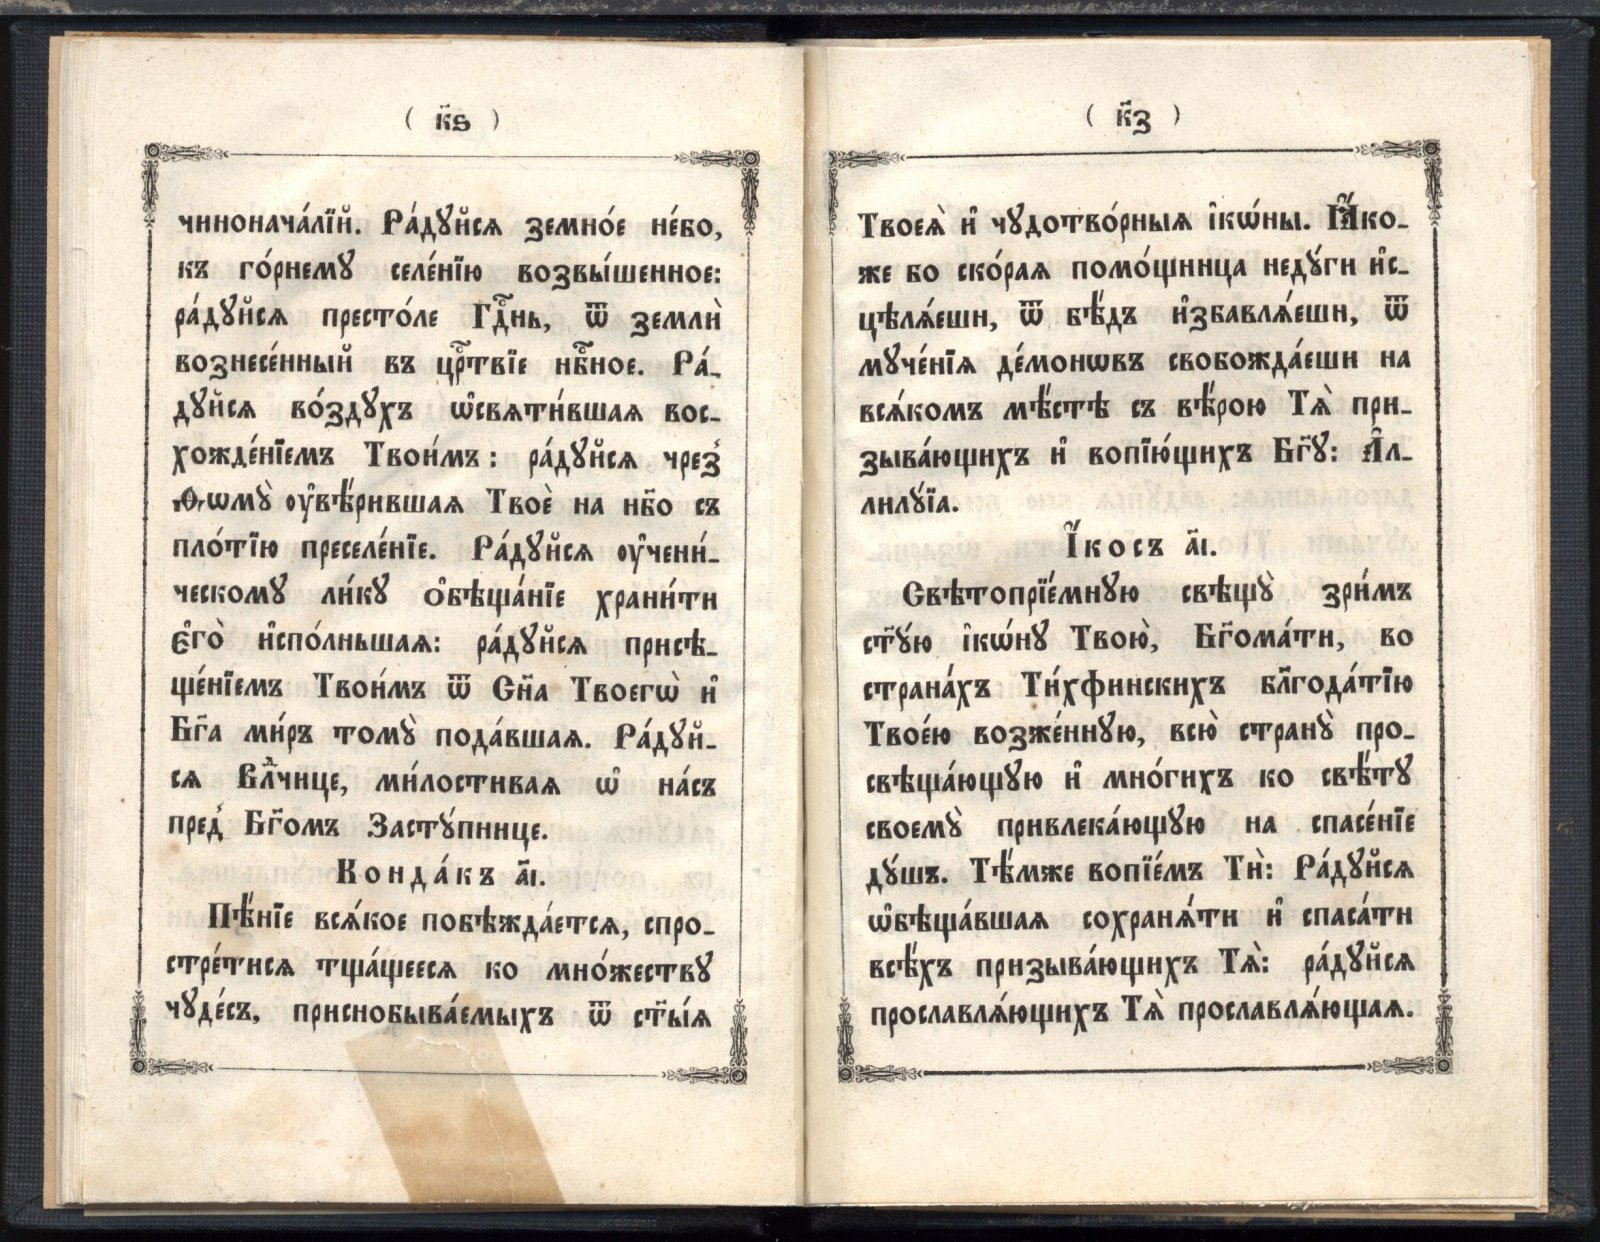 ( к҃ѕ )
чинонача́лїй. Ра́дуйсѧ земно́е не́бо,
къ го́рнему селе́нїю возвы́шенное:
ра́дуйсѧ престо́ле Гдⷭ҇нь, ѿ землѝ
вознесе́нный въ црⷭ҇твїе нбⷭ҇ное. Ра́-
дуйсѧ во́здухъ ѡ҆свѧти́вшаѧ вос-
хожде́нїемъ Твои́мъ: ра́дуйсѧ чрез̾
Ѳѡмꙋ̀ ᲂу҆вѣ́рившаѧ Твоѐ на нб҃о съ
пло́тїю преселе́нїе. Ра́дуйсѧ ᲂу҆чени́-
ческому ли́ку ѻ҆бѣща́нїе храни́ти
є҆гѡ̀ и҆спо́лньшаѧ: ра́дуйсѧ присѣ-
ще́нїемъ Твои́мъ ѿ Сн҃а Твоегѡ̀ и҆
Бг҃а ми́ръ томꙋ̀ пода́вшаѧ. Ра́дуй-
сѧ Влⷣчице, ми́лостиваѧ ѡ҆ на́съ
пред̾ Бг҃омъ Засту́пнице.
Конда́къ а҃і.
Пѣ́нїе всѧ́кое побѣжда́етсѧ, спро-
стре́тисѧ тща́щеесѧ ко мно́жеству
чуде́съ, приснобыва́емыхъ ѿ ст҃ы́ѧ
( к҃з )
Твоеѧ̀ и҆ чудотво́рныѧ і҆кѡ́ны. Ꙗ҆́ко-
же бо ско́раѧ помо́щница неду́ги и҆с-
цѣлѧ́еши, ѿ бѣ́дъ и҆збавлѧ́еши, ѿ
муче́нїѧ де́монѡвъ свобожда́еши на
всѧ́комъ мѣ́стѣ съ вѣ́рою Тѧ̀ при-
зыва́ющихъ и҆ вопїю́щихъ Бг҃у: А҆л-
лилу́їа.
І҆́косъ а҃і.
Свѣтопрїе́мную свѣщꙋ̀ зри́мъ
ст҃у́ю і҆кѡ́ну Твою̀, Бг҃ома́ти, во
страна́хъ Ти́хфинскихъ блг҃ода́тїю
Твое́ю возже́нную, всю̀ странꙋ̀ про-
свѣща́ющую и҆ мно́гихъ ко свѣ́ту
своемꙋ̀ привлека́ющую на спасе́нїе
ду́шъ. Тѣ́мже вопїе́мъ Тѝ: Ра́дуйсѧ
ѡ҆бѣща́вшаѧ сохранѧ́ти и҆ спаса́ти
всѣ́хъ призыва́ющихъ Тѧ̀: ра́дуйсѧ
прославлѧ́ющихъ Тѧ̀ прославлѧ́ющаѧ.